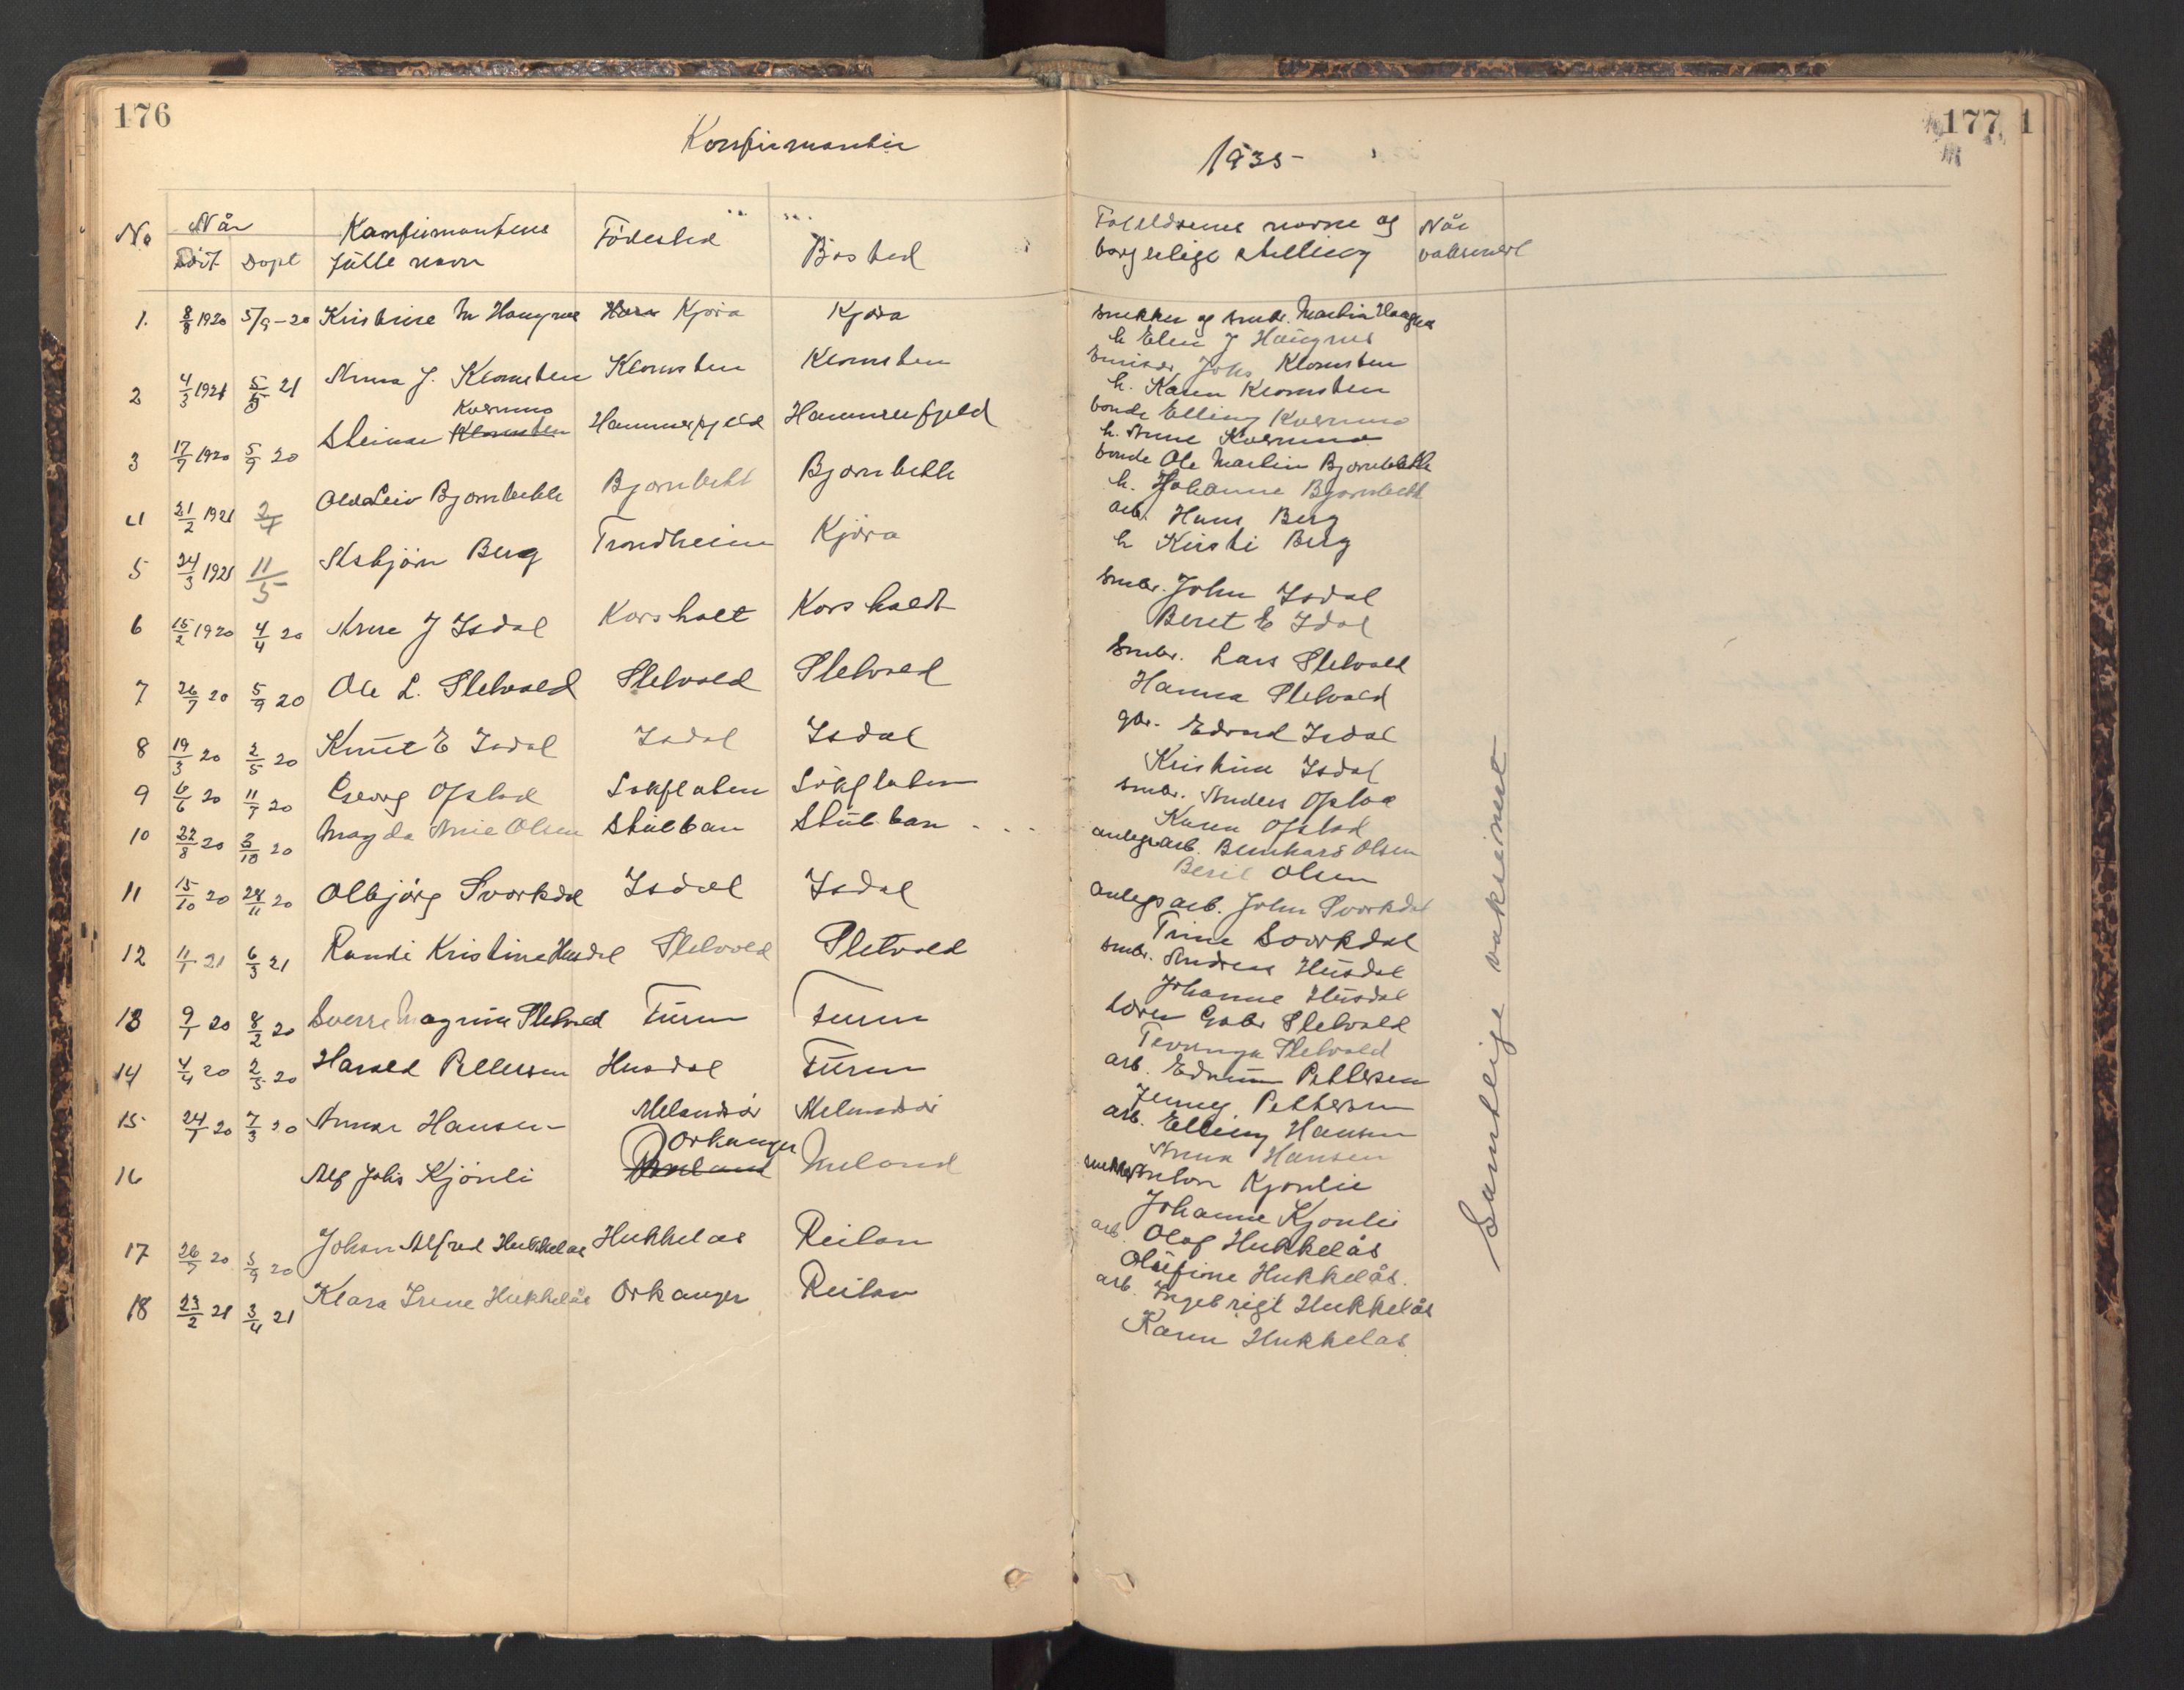 176
177 1
Konfirmanter
1935
No
Når
Født
Døpt
Konfirmantens
fulle navn
Födested
Bosted
Foreldrenes navne og
borgerlige stilling
Når
vaksinert
1. 8/8 1920 5/9-20 Kristine M Haugnes Kjöra Kjöra
snekker og smbr. Martin Haugnes
h Elen J Haugnes
2 4/3 1921 5/5 21 Anna J. Klomsten Klomsten Klomsten
Emisær Johs Klomsten
h. Karen Klomsten
Kvernmo
3 17/7 1920 5/9 20 Steinar Klomsten Hammerfjeld Hammerfjeld
bonde Elling Kvernmo
h. Anne Kvernmo
4 21/2 1921 2/4 Olav Leiv Bjørnbeth Bjørnbeth Bjørnbeth
bonde Ole Martin Bjørnbeth
h. Johanne Bjørnbeth
5 24/3 1921 11/5 Asbjörn Berg Trondheim Kjöra
arb. Hans Berg
h Kirsti Berg
6 15/2 1920 4/4 20 Arne J Isdal Korsholt Korsholdt
smbr. John Isdal
Beret E Idal
7 26/7 20 5/9 20 Ole L. Sletvold Sletvold Sletvold
Smbr. Lars Sletvold
Hanna Sletvold
8 19/3 20 2/5 20 Knut E Isdal Isdal Isdal
gbr. Edvard Isdal
Kristine Isdal
9 6/6 20 11/7 20 Georg Opstad
smbr. Anders Opstad
Karen Opstad
10 22/8 20 3/10 20 Magda Anie Olsen Stubban Stubban
anlegsarb. Bernhard Olsen
Berit Olsen
11 15/10 20 28/11 20 Olbjörg Svorkdal Isdal Isdal
anlegsarb. John Svorkdal
Trine Svorkdal
12 11/1 21 6/3 21 Randi Kristine Husdal Sletvold Sletvold
smbr. Andreas Husdal
Johanne Husdal
13 9/1 20 8/2 20 Sverre Magnus Sletvold Furen Furen
Sören Gabr Sletvold
Sletvold
14 4/4 20 2/5 20 Harald Pettersen Husdal Furen
arb. Edvin Pettersen
Jenny Pettersen
15 24/1 20 7/3 20 Annar Hansen Melandsör Melandsör
arb. Elling Hansen
Anna Hansen
Orkanger
16 Alf Johs Kjönli Meland
snekker Anton Kjönlie
Johanne Kjönlie
17 26/7 20 5/9 20 Johan Alfred Hukkelas Hukkelas Reilan
arb. Olaf Hukkelås
Olufine Hukkelås.
18 23/2 21 3/4 21 Klara Irene Hukkelås Orkanger Reilan
arb. Ingebrigt Hukkelås
Karen Hukkelas
Samtlige vaksinert